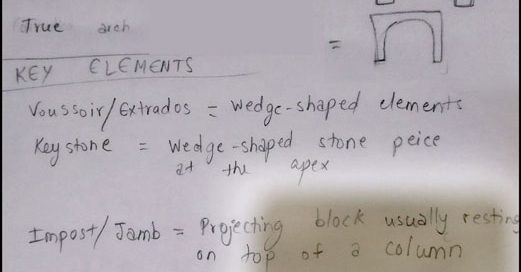 True arch =
KEY ELEMENTS
Voussoir/Extrados = wedge-shaped elements
Keystone = wedge-shaped stone peice
at the apex
Impost/Jamb = Projecting block usually resting
on top of a column